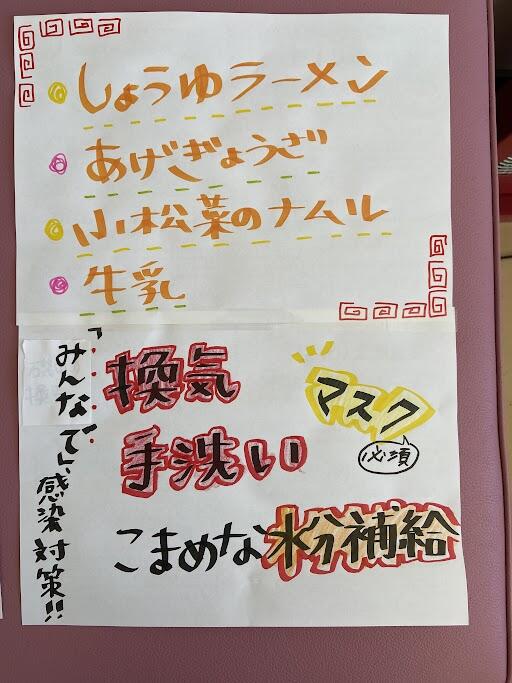 しょうゆラーメン
あげぎょうざ
小松菜のナムル
牛乳
「みんなで」感染対策!!
換気
手洗い
マスク
必須
こまめな水分補給